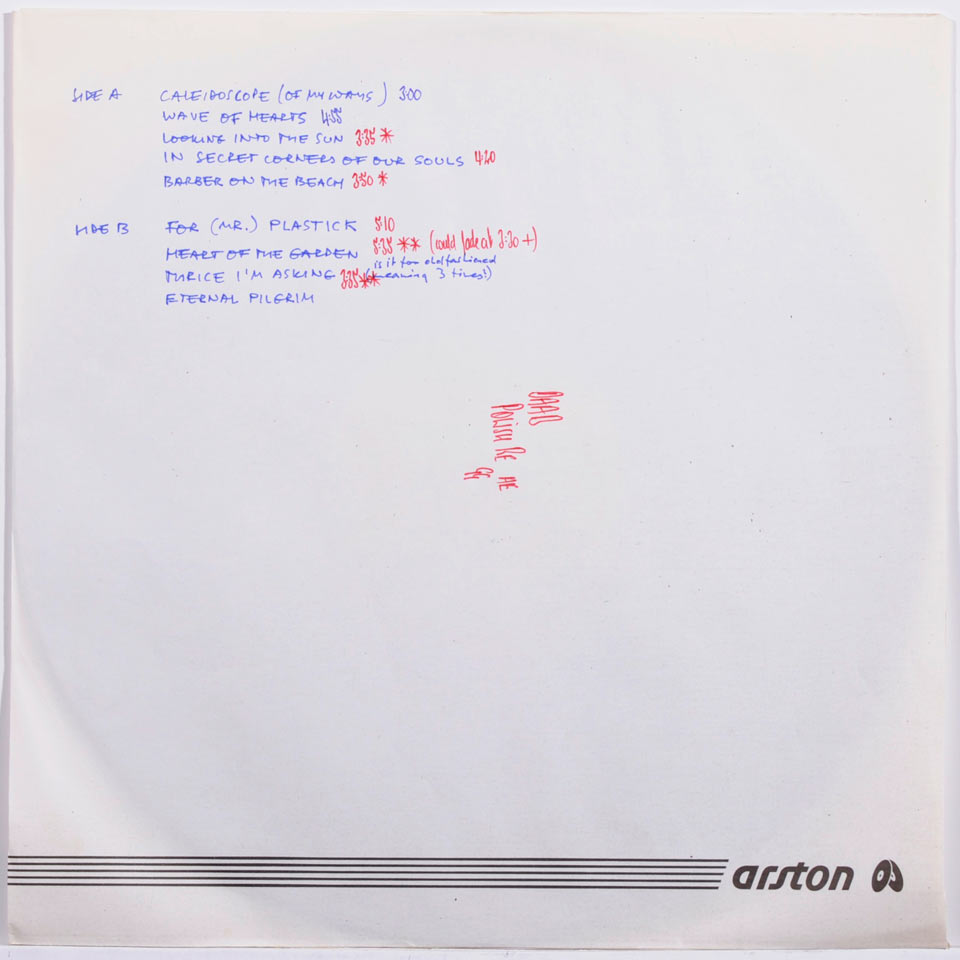 SIDE A CALEIDOSCOPE (OF MY WAYS) 3:00
WAVE OF HEARTS 4:55
LOOKING INTO THE SUN 3:35 *
IN SECRET CORNERS OF OUR SOULS 4:20
BARBER ON THE BEACH 3:50 *
SIDE B FOR (MR.) PLASTICK 5:10
HEART OF THE GARDEN 5:35 ** (could fade at 3:30 +)
is it for oldfashioned
THRICE I'M ASKING 3:35 ** (meaning 3 times?)
ETERNAL PILGRIM
DAAB
POLISH RE
arston